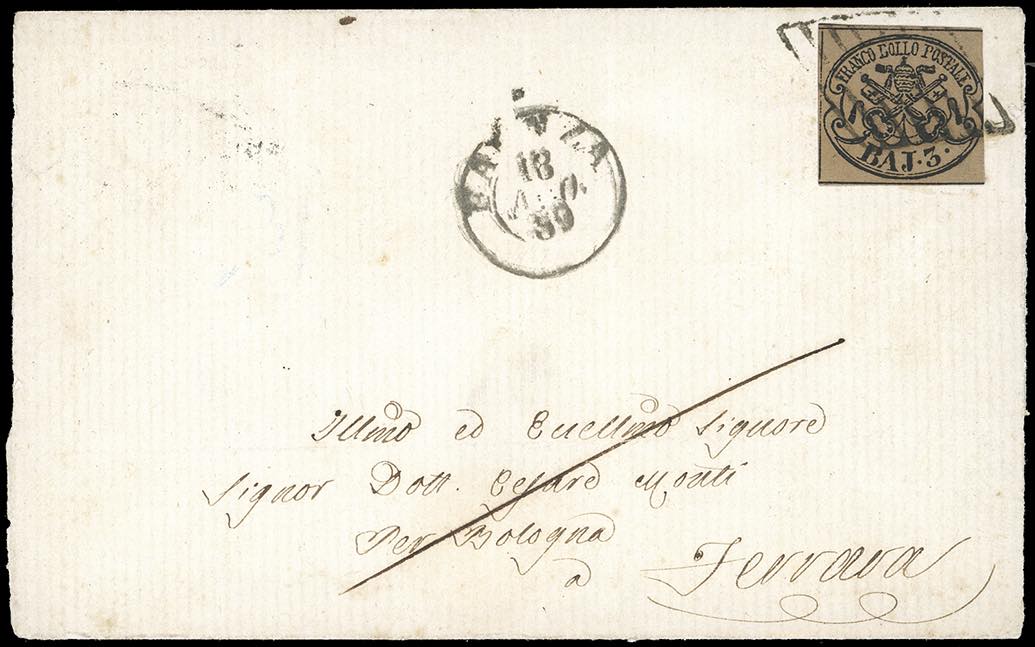 FRANCO BOLLO POSTALE
BAJ. 3.
18
AGO.
59
Illmo ed Eccellmo Signore
Signor Dott. Cesare Monti
Per Bologna
a Ferrara